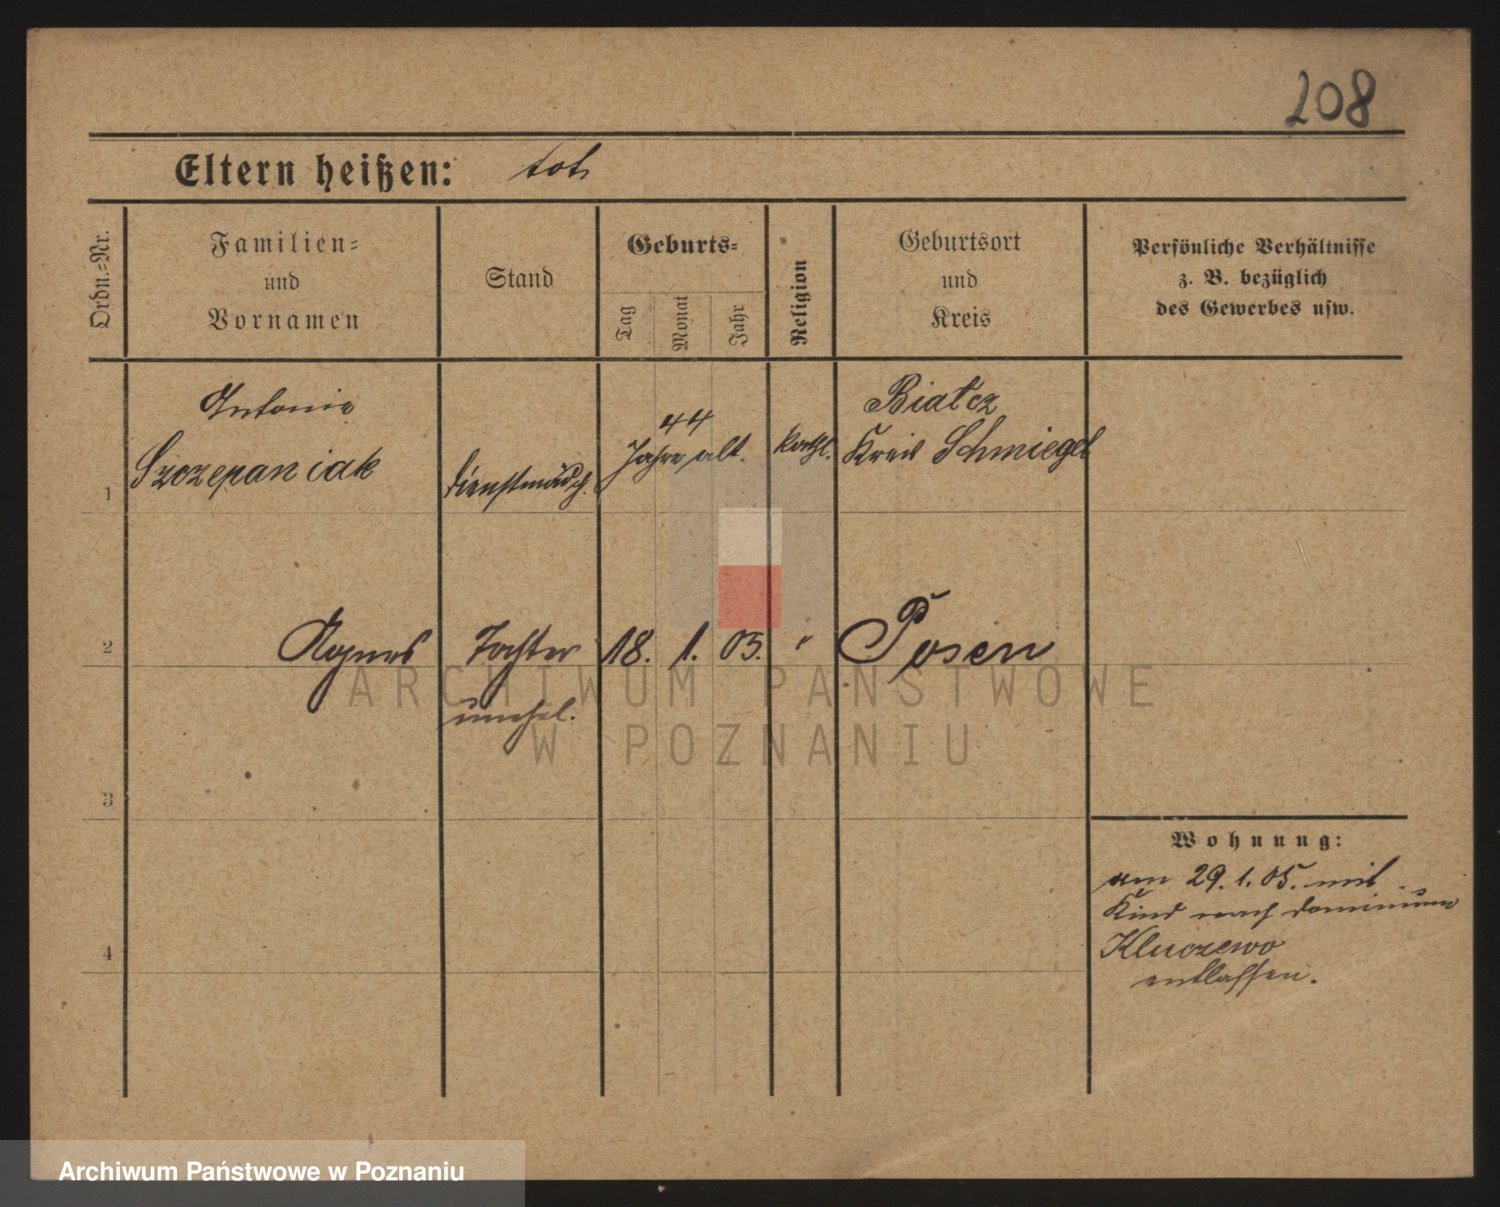 208
Eltern heißen: tot
Ordn.-Nr.
Familien-
und
Vornamen
Stand
Geburts-
Tag
Monat
Jahr
Religion
Geburtsort
und
Kreis
Persönliche Verhältnisse
z. B. bezüglich
des Gewerbes usw.
1
Antonie
Szczepaniak
Dienstmädch.
44
Jahre alt.
kathl.
Białcz
Kreis Schmiegel
2
Agnes
Tochter
unehel.
18. 1. 05.
"
Posen
3
4
Wohnung:
am 29.1.05. mit
Kind nach Dominium
Kluczewo
entlassen.
ARCHIWUM PAŃSTWOWE
W POZNANIU
Archiwum Państwowe w Poznaniu